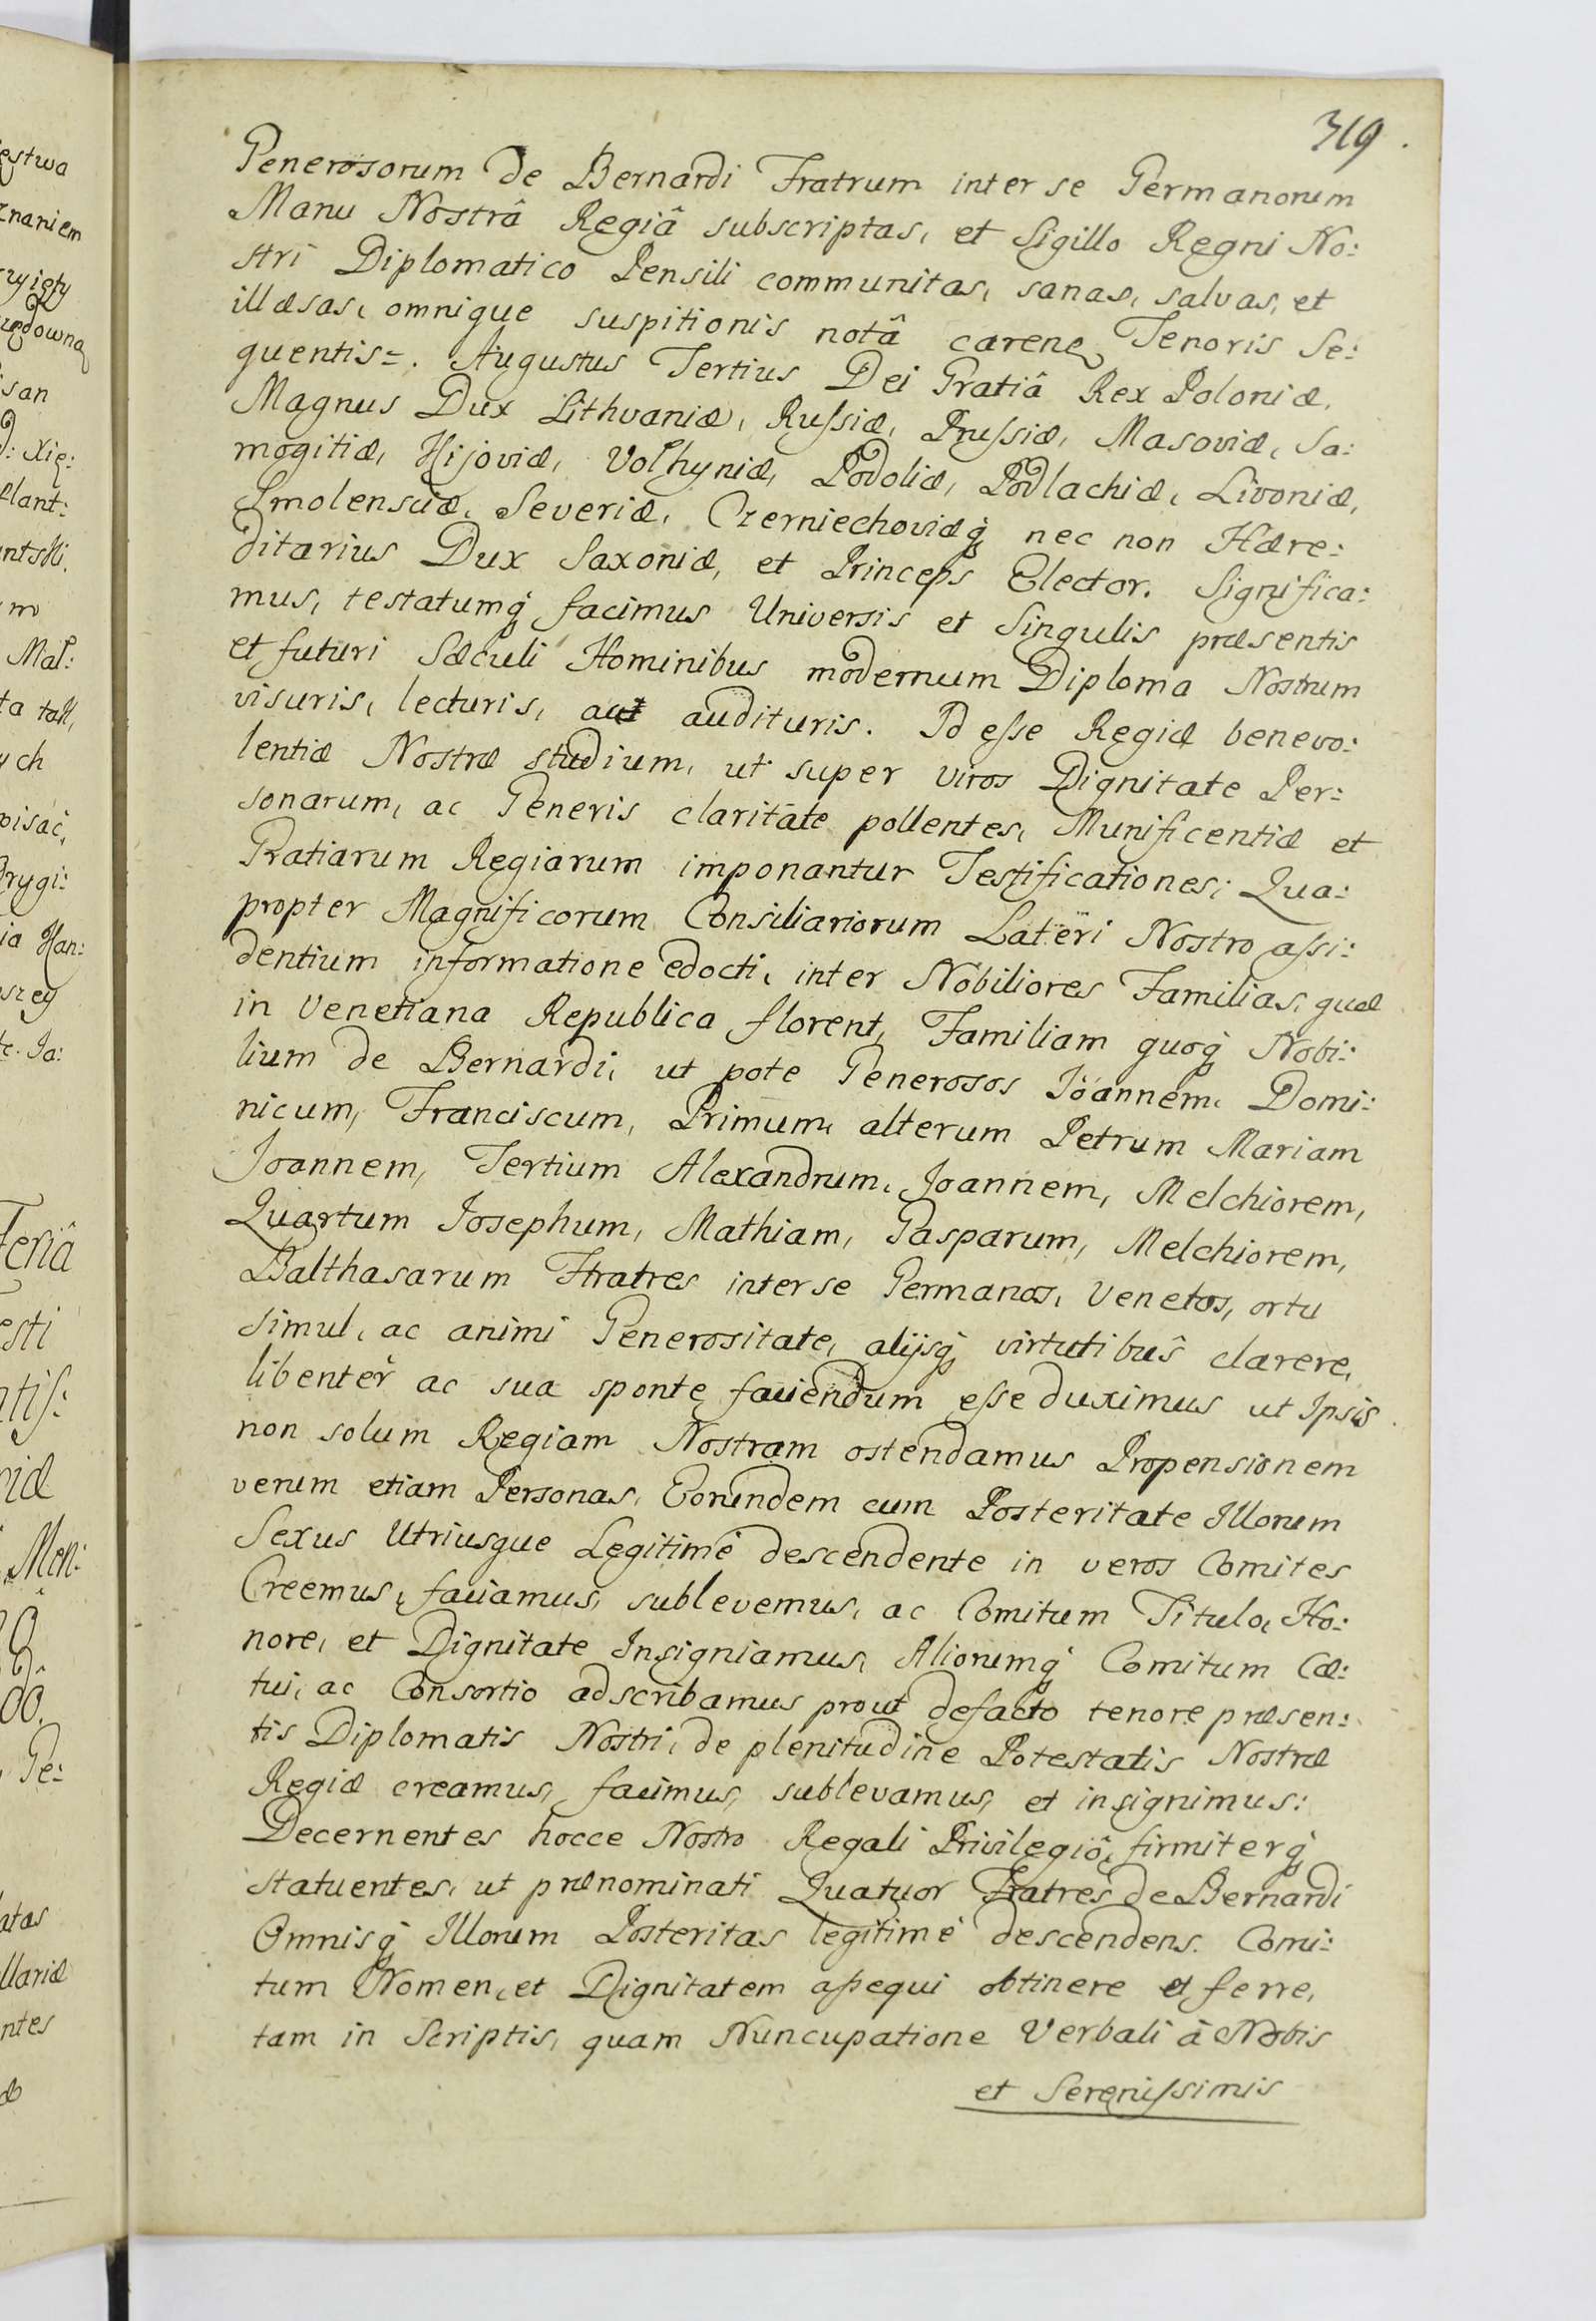 319.
Generosorum de Bernardi Fratrum inter se Germanorum
Manu Nostrâ Regiâ subscriptas, et Sigillo Regni No:
stri Diplomatico Pensili communitas, sanas, salvas, et
illæsas, omnique suspitionis notâ carenꝫ Tenoris Se:
quentis=. Augustus Tertius Dei Gratiâ Rex Poloniæ,
Magnus Dux Lithvaniæ, Russiæ, Prussiæ, Masoviæ, Sa:
mogitiæ, Kijoviæ, Volhyniæ, Podoliæ, Podlachiæ, Livoniæ,
Smolensciæ, Severiæ, Czerniechoviæq́ nec non Hære:
ditarius Dux Saxoniæ, et Princeps Elector. Significa:
mus, testatumq́ facimus Universis et Singulis præsentis
et futuri Sæculi Hominibus modernum Diploma Nostrum
visuris, lecturis, aut audituris. Id esse Regiæ benevo:
lentiæ Nostræ studium, ut super viros Dignitate Per:
sonarum, ac Generis claritate pollentes, Munificentiæ et
Gratiarum Regiarum imponantur Testificationes; Qua:
propter Magnificorum Consiliariorum Lateri Nostro assi:
dentium informatione edocti, inter Nobiliores Familias, quæ
in Venetiana Republica florent, Familiam quoq́ Nobi:
lium de Bernardi, ut pote Generosos Joannem, Domi:
nicum, Franciscum, Primum, alterum Petrum Mariam
Joannem, Tertium Alexandrum, Joannem, Melchiorem,
Quartum Josephum, Mathiam, Gasparum, Melchiorem,
Balthasarum Fratres inter se Germanos, Venetos, ortu
simul, ac animi Generositate, alijsq́ virtutibus clarere,
libenter ac sua sponte faciendum esse duximus ut Ipsis
non solum Regiam Nostram ostendamus Propensionem
verum etiam Personas, Eorundem cum Posteritate Illorum
Sexus Utriusque Legitimè descendente in veros Comites
Creemus, faciamus, sublevemus, ac Comitum Titulo, Ho:
nore, et Dignitate Insigniamus, Aliorumq́ Comitum Cæ:
tui, ac Consortio adscribamus prout defacto tenore præsen:
tis Diplomatis Nostri, de plenitudine Potestatis Nostræ
Regiæ creamus, facimus, sublevamus, et insignimus:
Decernentes hocce Nostro Regali Privilegiô, firmiterq́
statuentes, ut prænominati Quatuor Fratres de Bernardi
Omnisq́ Illorum Posteritas legitimè descendens. Comi:
tum Nomen, et Dignitatem assequi obtinere et ferre,
tam in Scriptis, quam Nuncupatione Verbali à Nobis
et Serenissimis